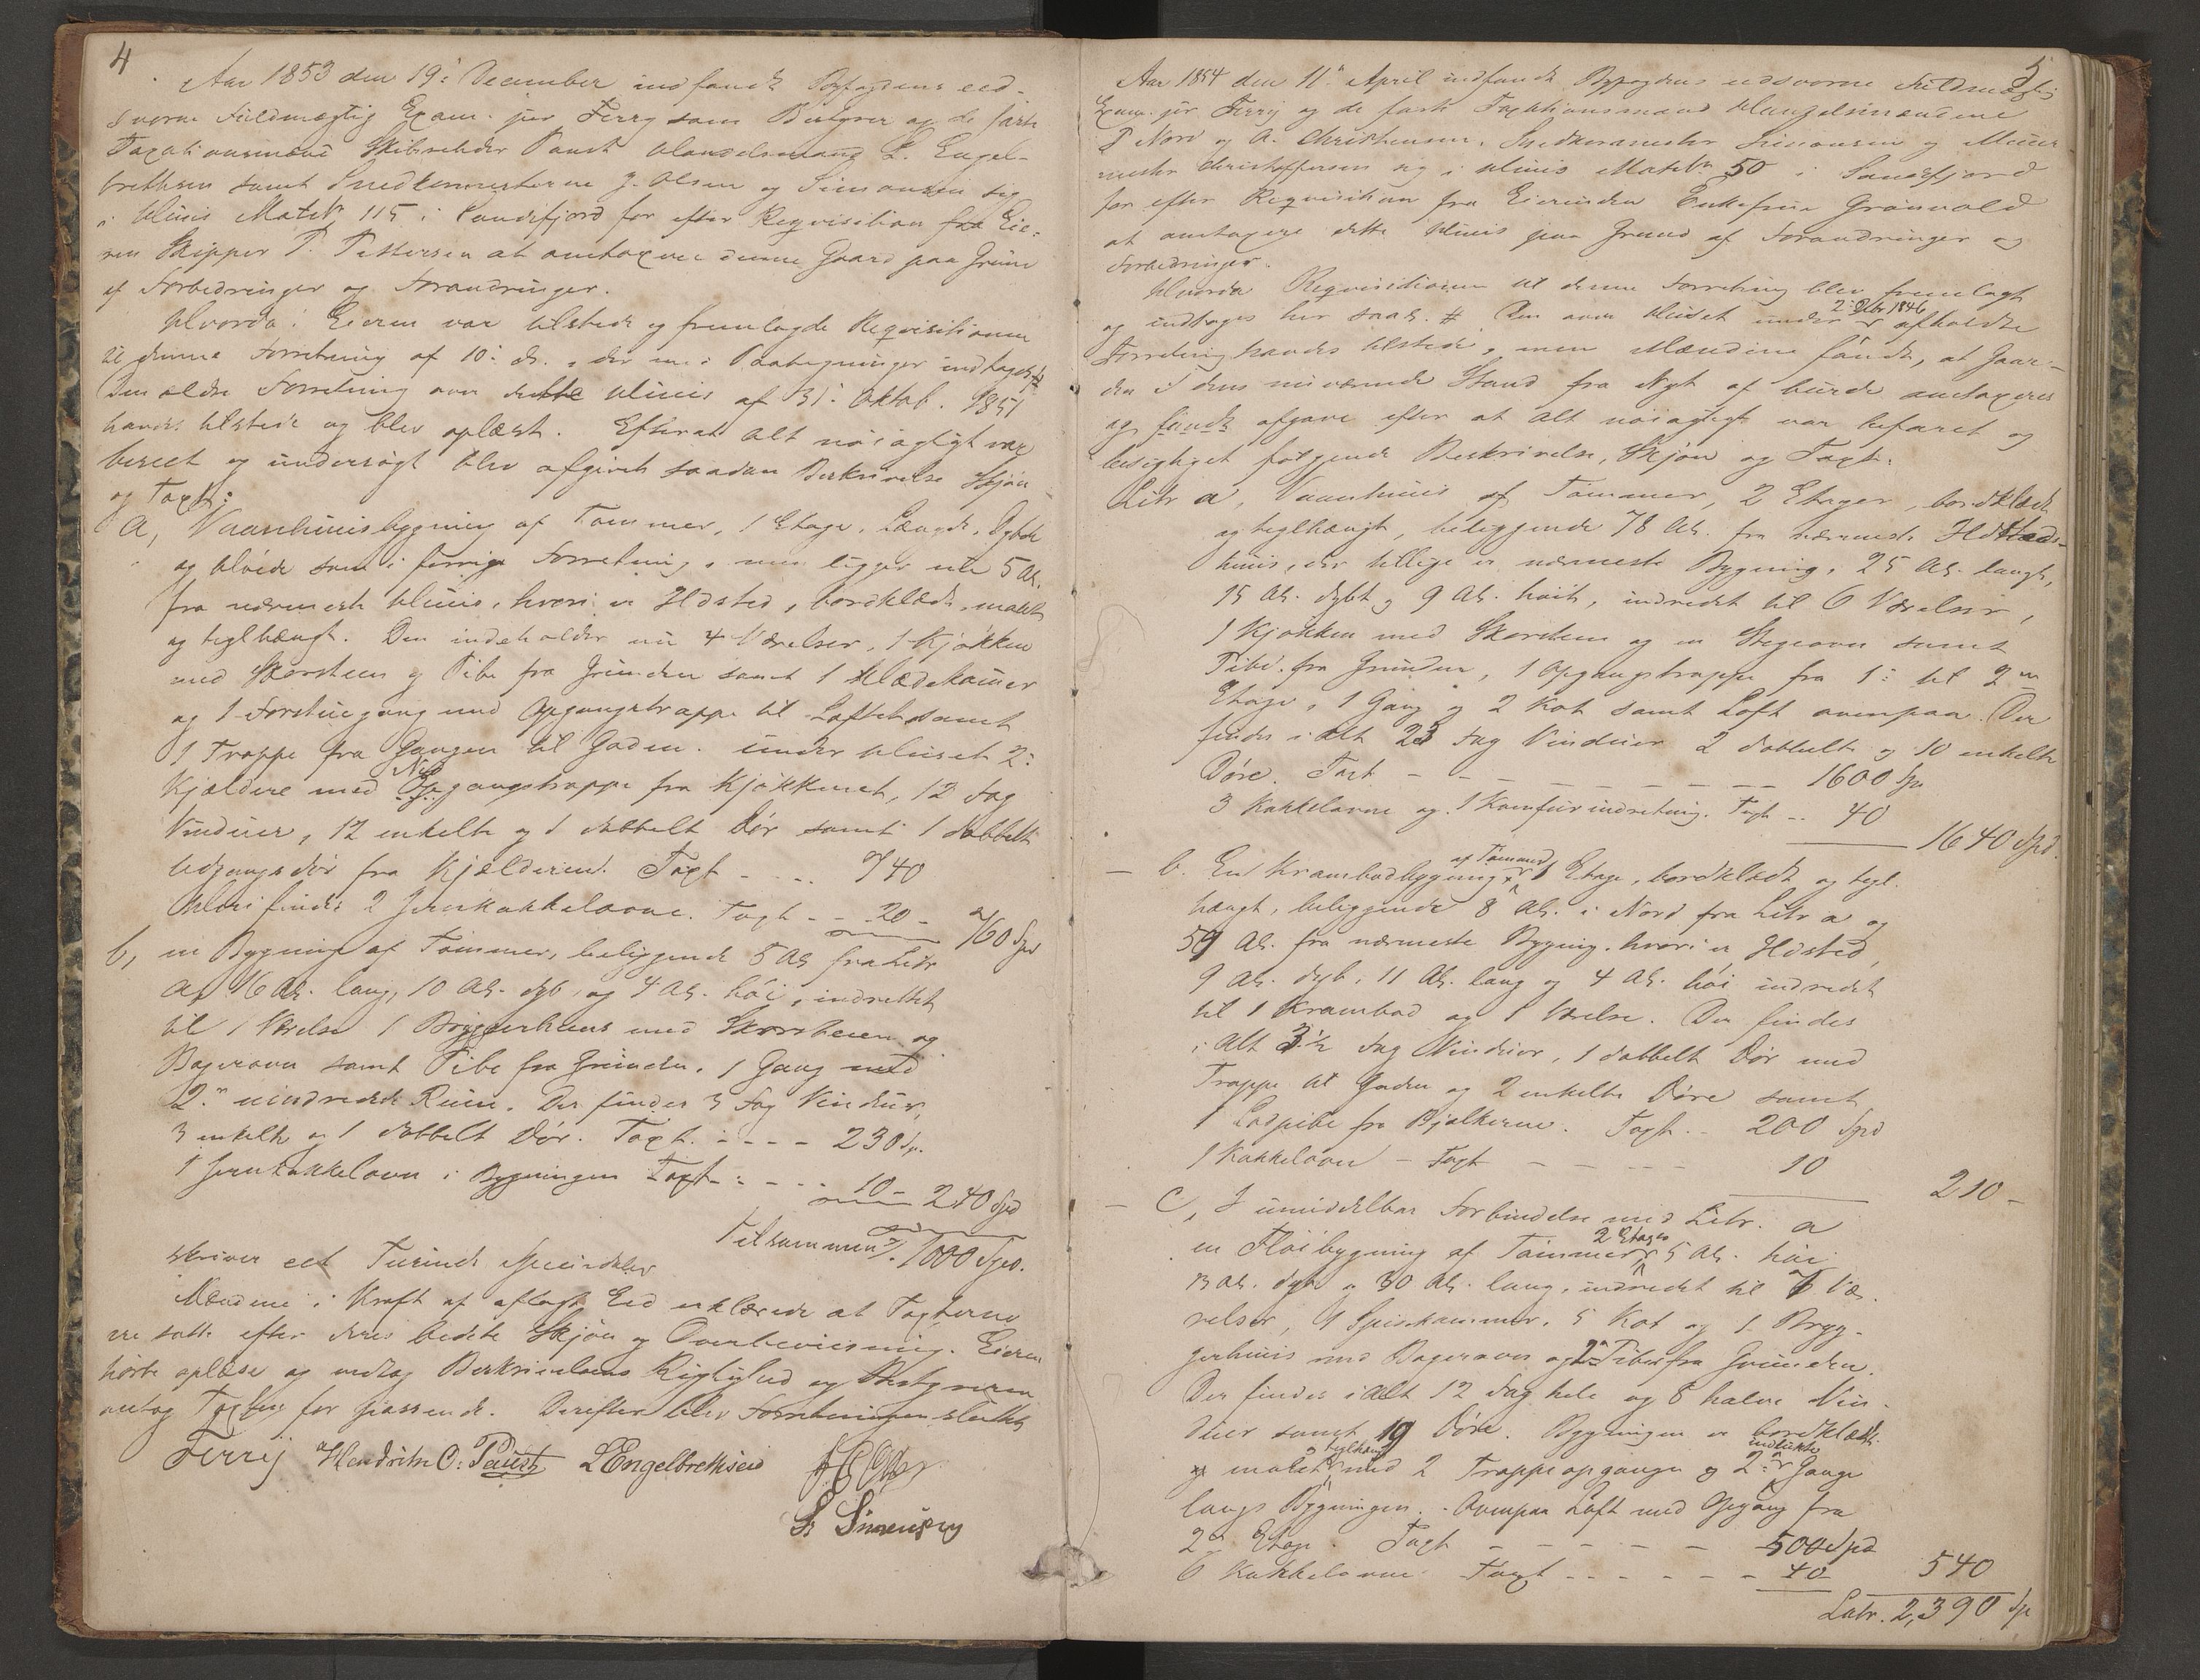 4
Aar 1853 den 19: December indfandt Byfogdens eed-
svorne Fuldmægtig Exam. jur Ferry som Bestyrer og de faste
Taxationsmænd Skibsrheder Paust Handelsmand L. Engel-
brethsen samt Snedkermesterne J. Olsen og Simonsen sig
i Huus Matr. No 115 i Sandefjord for efter Reqvisition fra Eie-
ren Skipper P. Pettersen at omtaxere denne Gaard paa Grund
af Forbedringer og Forandringer.
Hvorda: Eieren var tilstede og fremlagde Reqvisitionen
til denne Forretning af 10: ds. der med Paategninger indtages #
Den ældre Forretning over dette Huus af 31: Oktob. 1851
havdes tilstede og blev oplæst. Efterat Alt nøiagtigt var
beseet og undersøgt blev afgivet saadan Beskrivelse Skjøn
og Taxt:
a, Vaaningshuusbygning af Tømmer, 1 Etage, Længde, Dybde
og Høide som i forrige Forretning, men ligger nu 5 Al.
fra nærmeste Huus, hvori er Ildsted, bordklædt, malet
og teglhængt. Den indeholder nu 4 Værelser, 1 Kjøkken
med Skorsteen og Pibe fra Grunden samt 1 Klædekammer
og 1 Forstuegang med Opgangstrappe til Loftet samt
1 Trappe fra Gangen til Gaden. Under Huset 2:
Kjældere med Nedgangstrappe fra Kjøkkenet, 12 Fag
Vinduer, 12 enkelte og 1 dobbelt Dør samt 1 dobbelt
Udgangsdør fra Kjælderen. Taxt - - - 740
Hori findes 2 Jernkakkelovne. Taxt - - 20 - 760 Spd
b, en Bygning af Tømmer, beliggende 5 Al. fra Litr
a, 16 Al. lang, 10 Al. dyb, og 4 Al. høi, indrettet
til 1 Værelse 1 Bryggerhuus med Skorsteen og
Bagerovn samt Pibe fra Grunden, 1 Gang med
2: uindredede Rum. Der findes 3 Fag Vinduer,
3 enkelte og 1 dobbelt Dør. Taxt. - - - - 230 Sp.
1 Jernkakkelovn i Bygningen Taxt - - - - 10 - 240 Spd
Tilsammen 1000 Spd.
skriver eet Tusinde Speciedaler
Mændene i Kraft af aflagt Eed erklærede at Taxterne
ere satte efter deres bedste Skjøn og Overbeviisning. Eieren
hørte oplæse og vedtog Beskrivelsens Rigtighed og Bestyreren
antog Taxten for passende. Derefter blev Forretningen sluttet
Ferrij Hendrik O. Paust LEngelbrethsen
S Simensen
5
Aar 1854 den 11: April indfandt Byfogdens eedsvorne Fuldmægtig
Exam. jur Ferrij og de faste Taxationsmænd Handelsmændene
P Nord og A. Christensen, Snedkermester Simonsen og Muur
mester Christoffersen sig i Huus Matr. No 50 i Sandefjord
for efter Reqvisition fra Eierinden Enkefrue Grønvold
at omtaxere dette Huus paa Grund af Forandringer og
Forbedringer.
Hvorda Reqvisitionen til denne Forretning blev fremlagt
og indtages her saal. # Den over Huset under 2: Oktbr 1846 afholdte
Forretning havdes tilstede, men Mændene fandt, at Gaar-
den i dens nuværende Stand fra Nyt af burde omtaxeres
og fandt afgave efter at Alt nøiagtigt var befaret og
besigtiget følgende Beskrivelse, Skjøn og Taxt:
Litr a, Vaanhuus af Tømmer, 2 Etager, bordklædt
og teglhængt, beliggende 78 Al. fra nærmeste Ildsteds-
huus, der tillige er nærmeste Bygning, 25 Al. langt,
15 Al. dybt og 9 Al. høit, indredet til 6 Værelser,
1 Kjøkken med Skorsteen og en Stegeovn samt
Pibe fra Grunden, 1 Opgangstrappe fra 1: til 2den
Etage, 1 Gang og 2 Kot samt Loft ovenpaa. Der
findes i Alt 23 Fag Vinduer 2 dobbelte og 10 enkelte
Døre. Taxt - - - - - - - - - 1600 Sp
3 Kakkelovne og 1 Komfurindretning. Taxt - - 40
1640 Spd.
b. En Krambodbygning af Tømmer 1 Etage, bordklædt og tegl-
hængt, beliggende 8 Al. i Nord fra Litr a og
59 Al. fra nærmeste Bygning, hvori er Ildsted,
9 Al. dyb, 11 Al. lang og 4 Al. høi indredet
til 1 Krambod og 1 Værelse. Der findes
i Alt 3 1/2 Fag Vinduer, 1 dobbelt Dør med
Trappe til Gaden og 2 enkelte Døre samt
1 Ladpibe fra Bjelkerne. Taxt. - 200 Spd
1 Kakkelovn - Taxt - - - - - 10
210 -
c, I umiddelbar Forbindelse med Litr. a
en Fløibygning af Tømmer 2 Etager 5 Al. høi
13 Al. dyb og 30 Al. lang, indredet til 7 Væ-
relser, 1 Spisekammer, 5 Kot og 1 Bryg-
gerhuus med Bagerovn og 2 Piber fra Grunden.
Der findes i alt 12 Fag hele og 8 halve Vin-
duer samt 19 Døre. Bygningen er bordklædt
og malet teglhængt med 2 Trappeopgange og 2: indlukte Gange
langs Bygningen. Ovenpaa Loft med Opgang fra
2den Etage. Taxt - - - - - - 500 Spd
6 Kakkelovne Taxt - - - - - - 40 540
Latr. 2,390 Sp